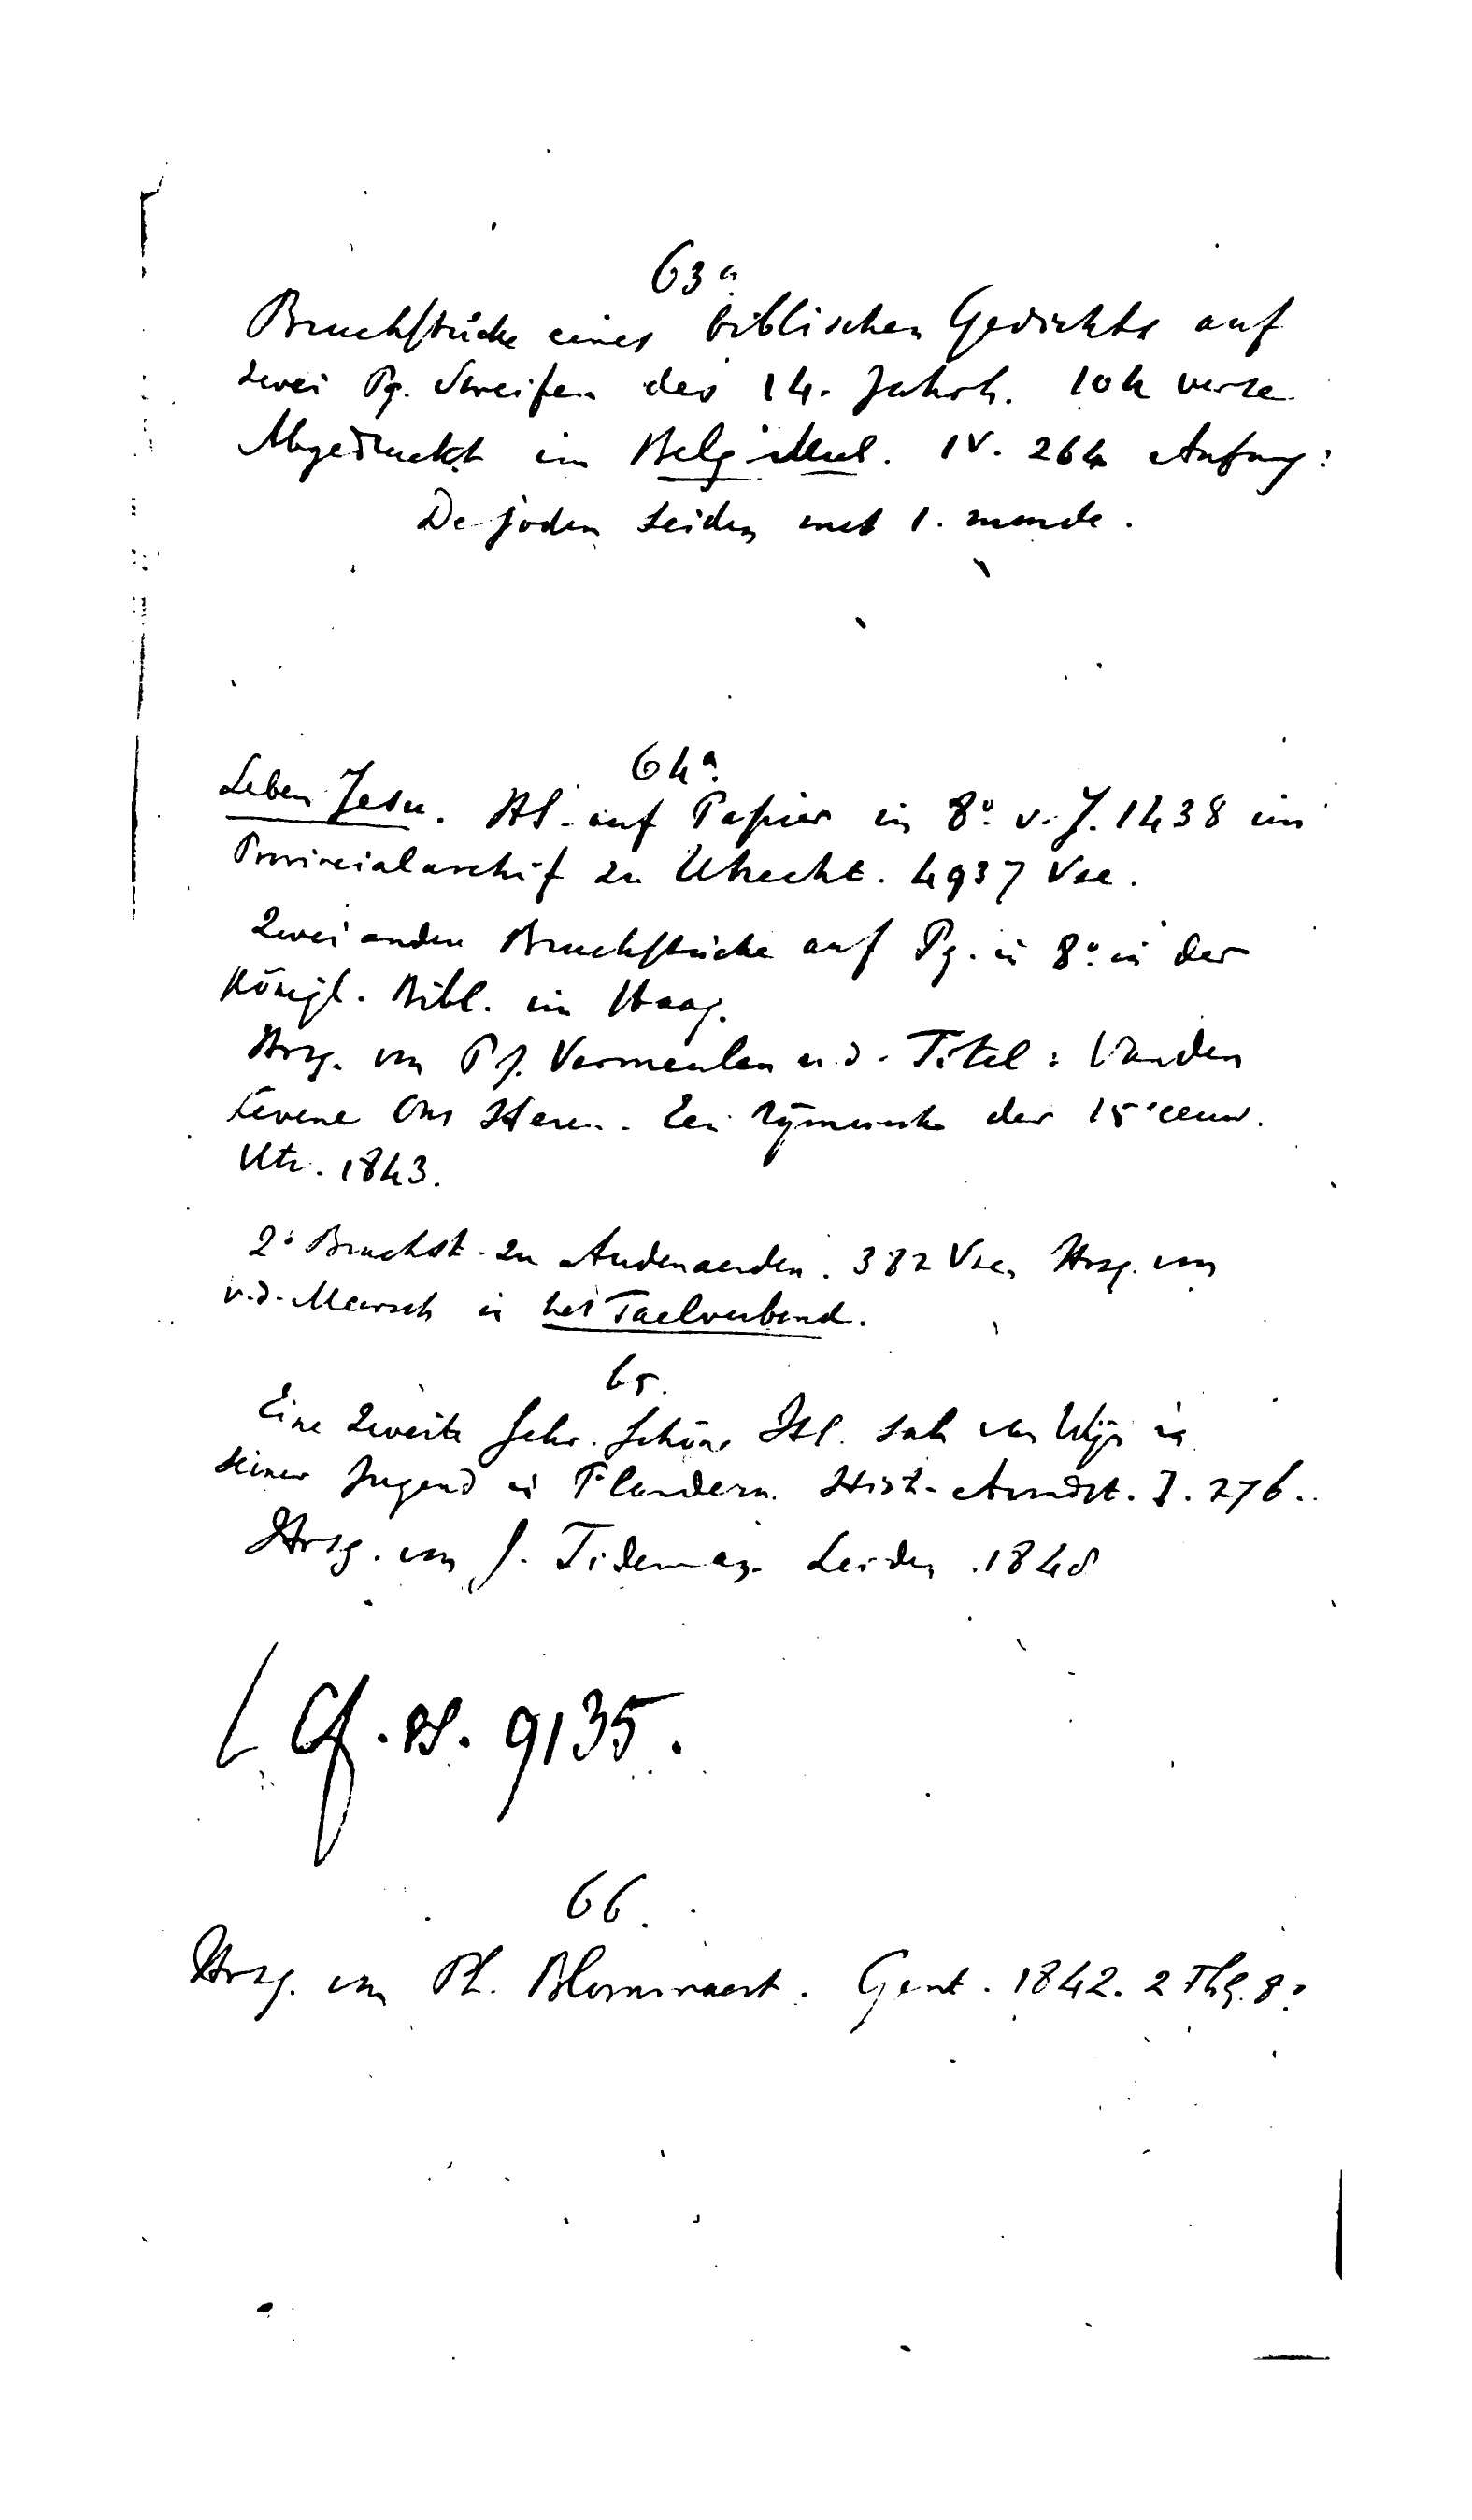 63a.
Bruchstücke eines biblischen Gedichts auf
zwei Pg. Streifen des 14. Jahrh. 104 verse
Abgedruckt im Belg. Mus. IV. 264 Anfang:
De joden seiden met 1. monde.
64a.
Leben Jesu. Hs. auf Papier in 8o. v. J. 1438 im
Provincialarchif zu Utrecht. 4937 Vse.
Zwei andere Bruchstücke auf Pg. in 8o. in der
Königl. Bibl. im Haag.
Hrsg. von P. J. Vermeulen u. d. Titel: Vanden
Levene Ons Heren. Een rijmwerk der 15e eeuw.
Utr. 1843.
2o Bruchst. zu Audenaerden. 382 Vse, Hrsg. von
v. d. Meersch in het Taelverbond.
65.
Eine zweite sehr schöne Hs. sah van Wijn in
seiner Jugend in Flandern. Hist. Avondst. I. 276.
Hrsg. von J. Tideman. Leiden 1848
[Cf. Hs. 9135.
66.
Hrsg. von Ph. Blommaert. Gent. 1842. 2 Thle. 8o.